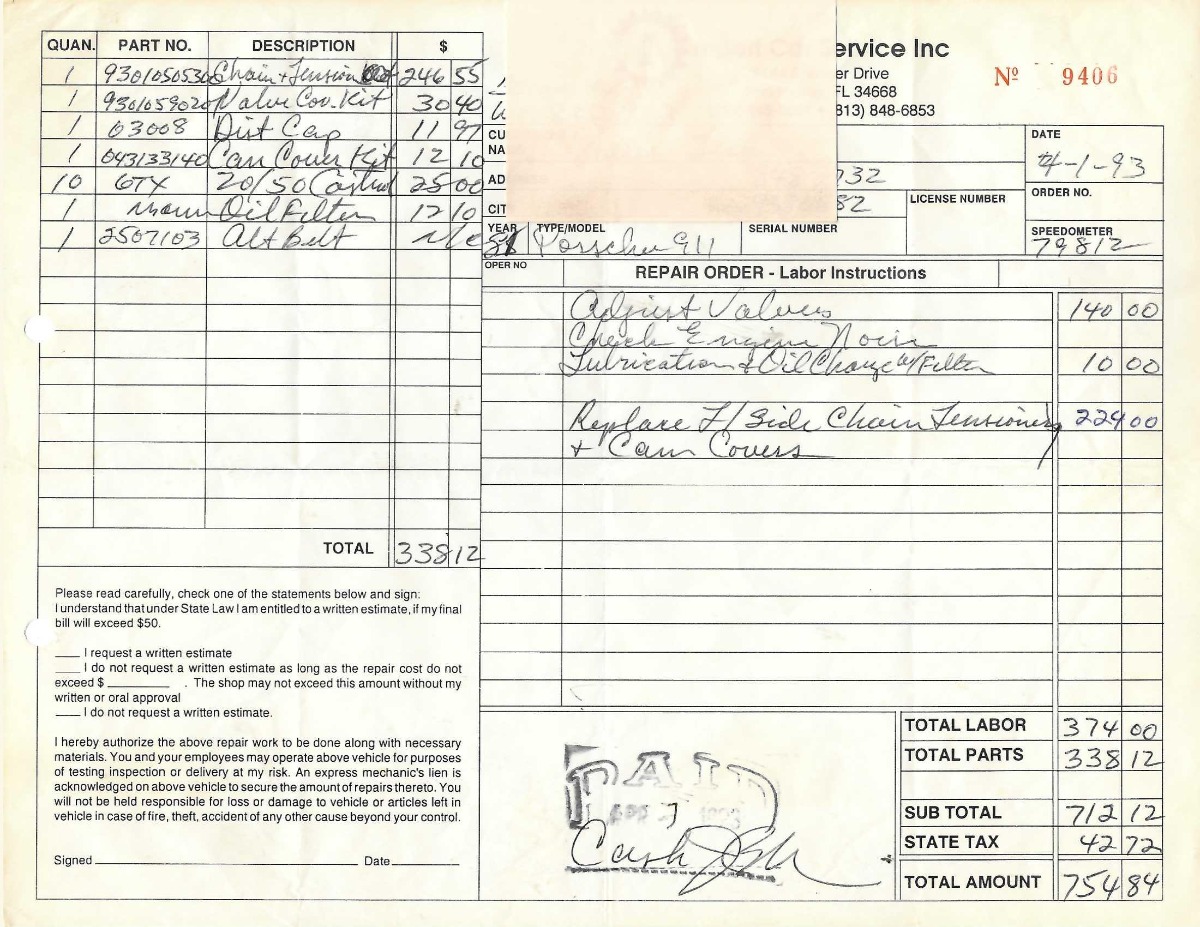 ervice Inc
er Drive
FL 34668
813) 848-6853
Nº 9406
QUAN. PART NO. DESCRIPTION $
1 93010505306 Chain + Tension 246 55
1 9301059020 Valve Cov. Kit 30 40
1 03008 Dist Cap 11 97
1 043133140 Cam Cover Kit 12 10
10 GTX 20/50 Castrol 25 00
1 Mann Oil Filter 12 10
1 2507103 Alt Belt n/c
TOTAL 338 12
CU
NA
AD 732
CIT 82
LICENSE NUMBER
DATE
4-1-93
ORDER NO.
SPEEDOMETER
79812
YEAR TYPE/MODEL SERIAL NUMBER
Porsche 911
OPER NO REPAIR ORDER - Labor Instructions
Adjust Valves 140 00
Check Engine Noise
Lubrication & Oil Change w/Filter 10 00
Replace L/Side Chain Tensioner 224 00
+ Cam Covers
Please read carefully, check one of the statements below and sign:
I understand that under State Law I am entitled to a written estimate, if my final
bill will exceed $50.
____ I request a written estimate
____ I do not request a written estimate as long as the repair cost do not
exceed $ __________ . The shop may not exceed this amount without my
written or oral approval
____ I do not request a written estimate.
I hereby authorize the above repair work to be done along with necessary
materials. You and your employees may operate above vehicle for purposes
of testing inspection or delivery at my risk. An express mechanic's lien is
acknowledged on above vehicle to secure the amount of repairs thereto. You
will not be held responsible for loss or damage to vehicle or articles left in
vehicle in case of fire, theft, accident of any other cause beyond your control.
Signed Date
PAID
1993
Cash
TOTAL LABOR 374 00
TOTAL PARTS 338 12
SUB TOTAL 712 12
STATE TAX 42 72
TOTAL AMOUNT 754 84